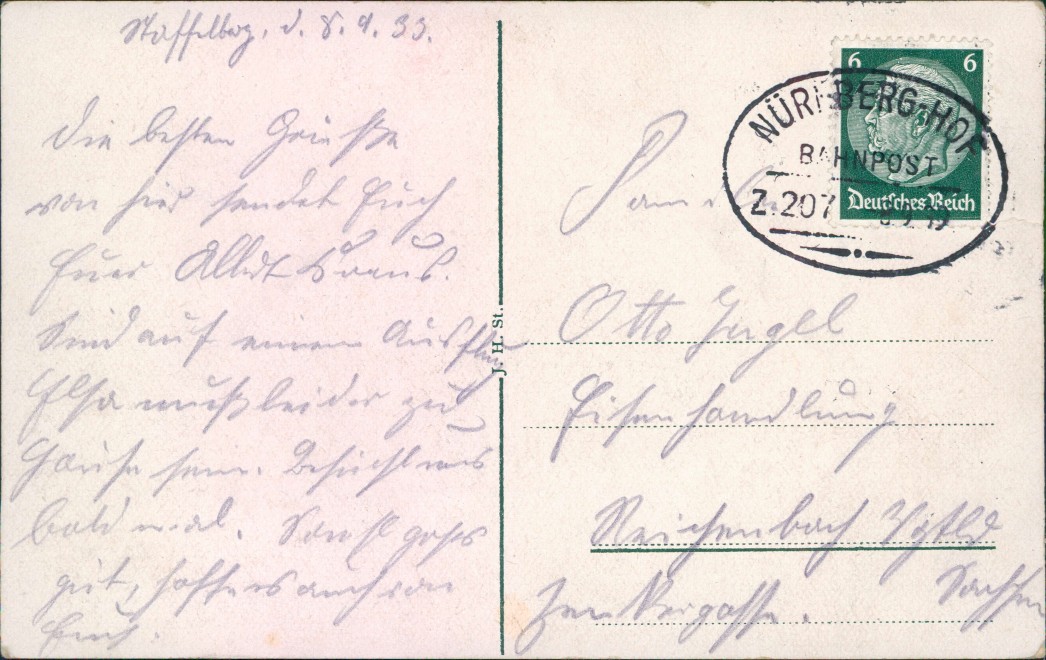 Staffelberg, d. 8.9.33.
Die besten Grüße
von hier sendet Euch
Euer Albert Kraus.
Sind auf einem Ausflug
Elsa muß leider zu
Hause sein. Besucht uns
bald mal. Sonst gehts
gut, hoffe es auch von
Euch.
J. H. St.
6 6
Deutsches Reich
NÜRNBERG-HOF
BAHNPOST
Z.207
Familie
Otto
Eisenhandlung
Reichenbach Vgtld
Sachsen